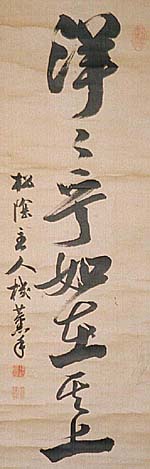 洋々乎如在其上
松陰主人